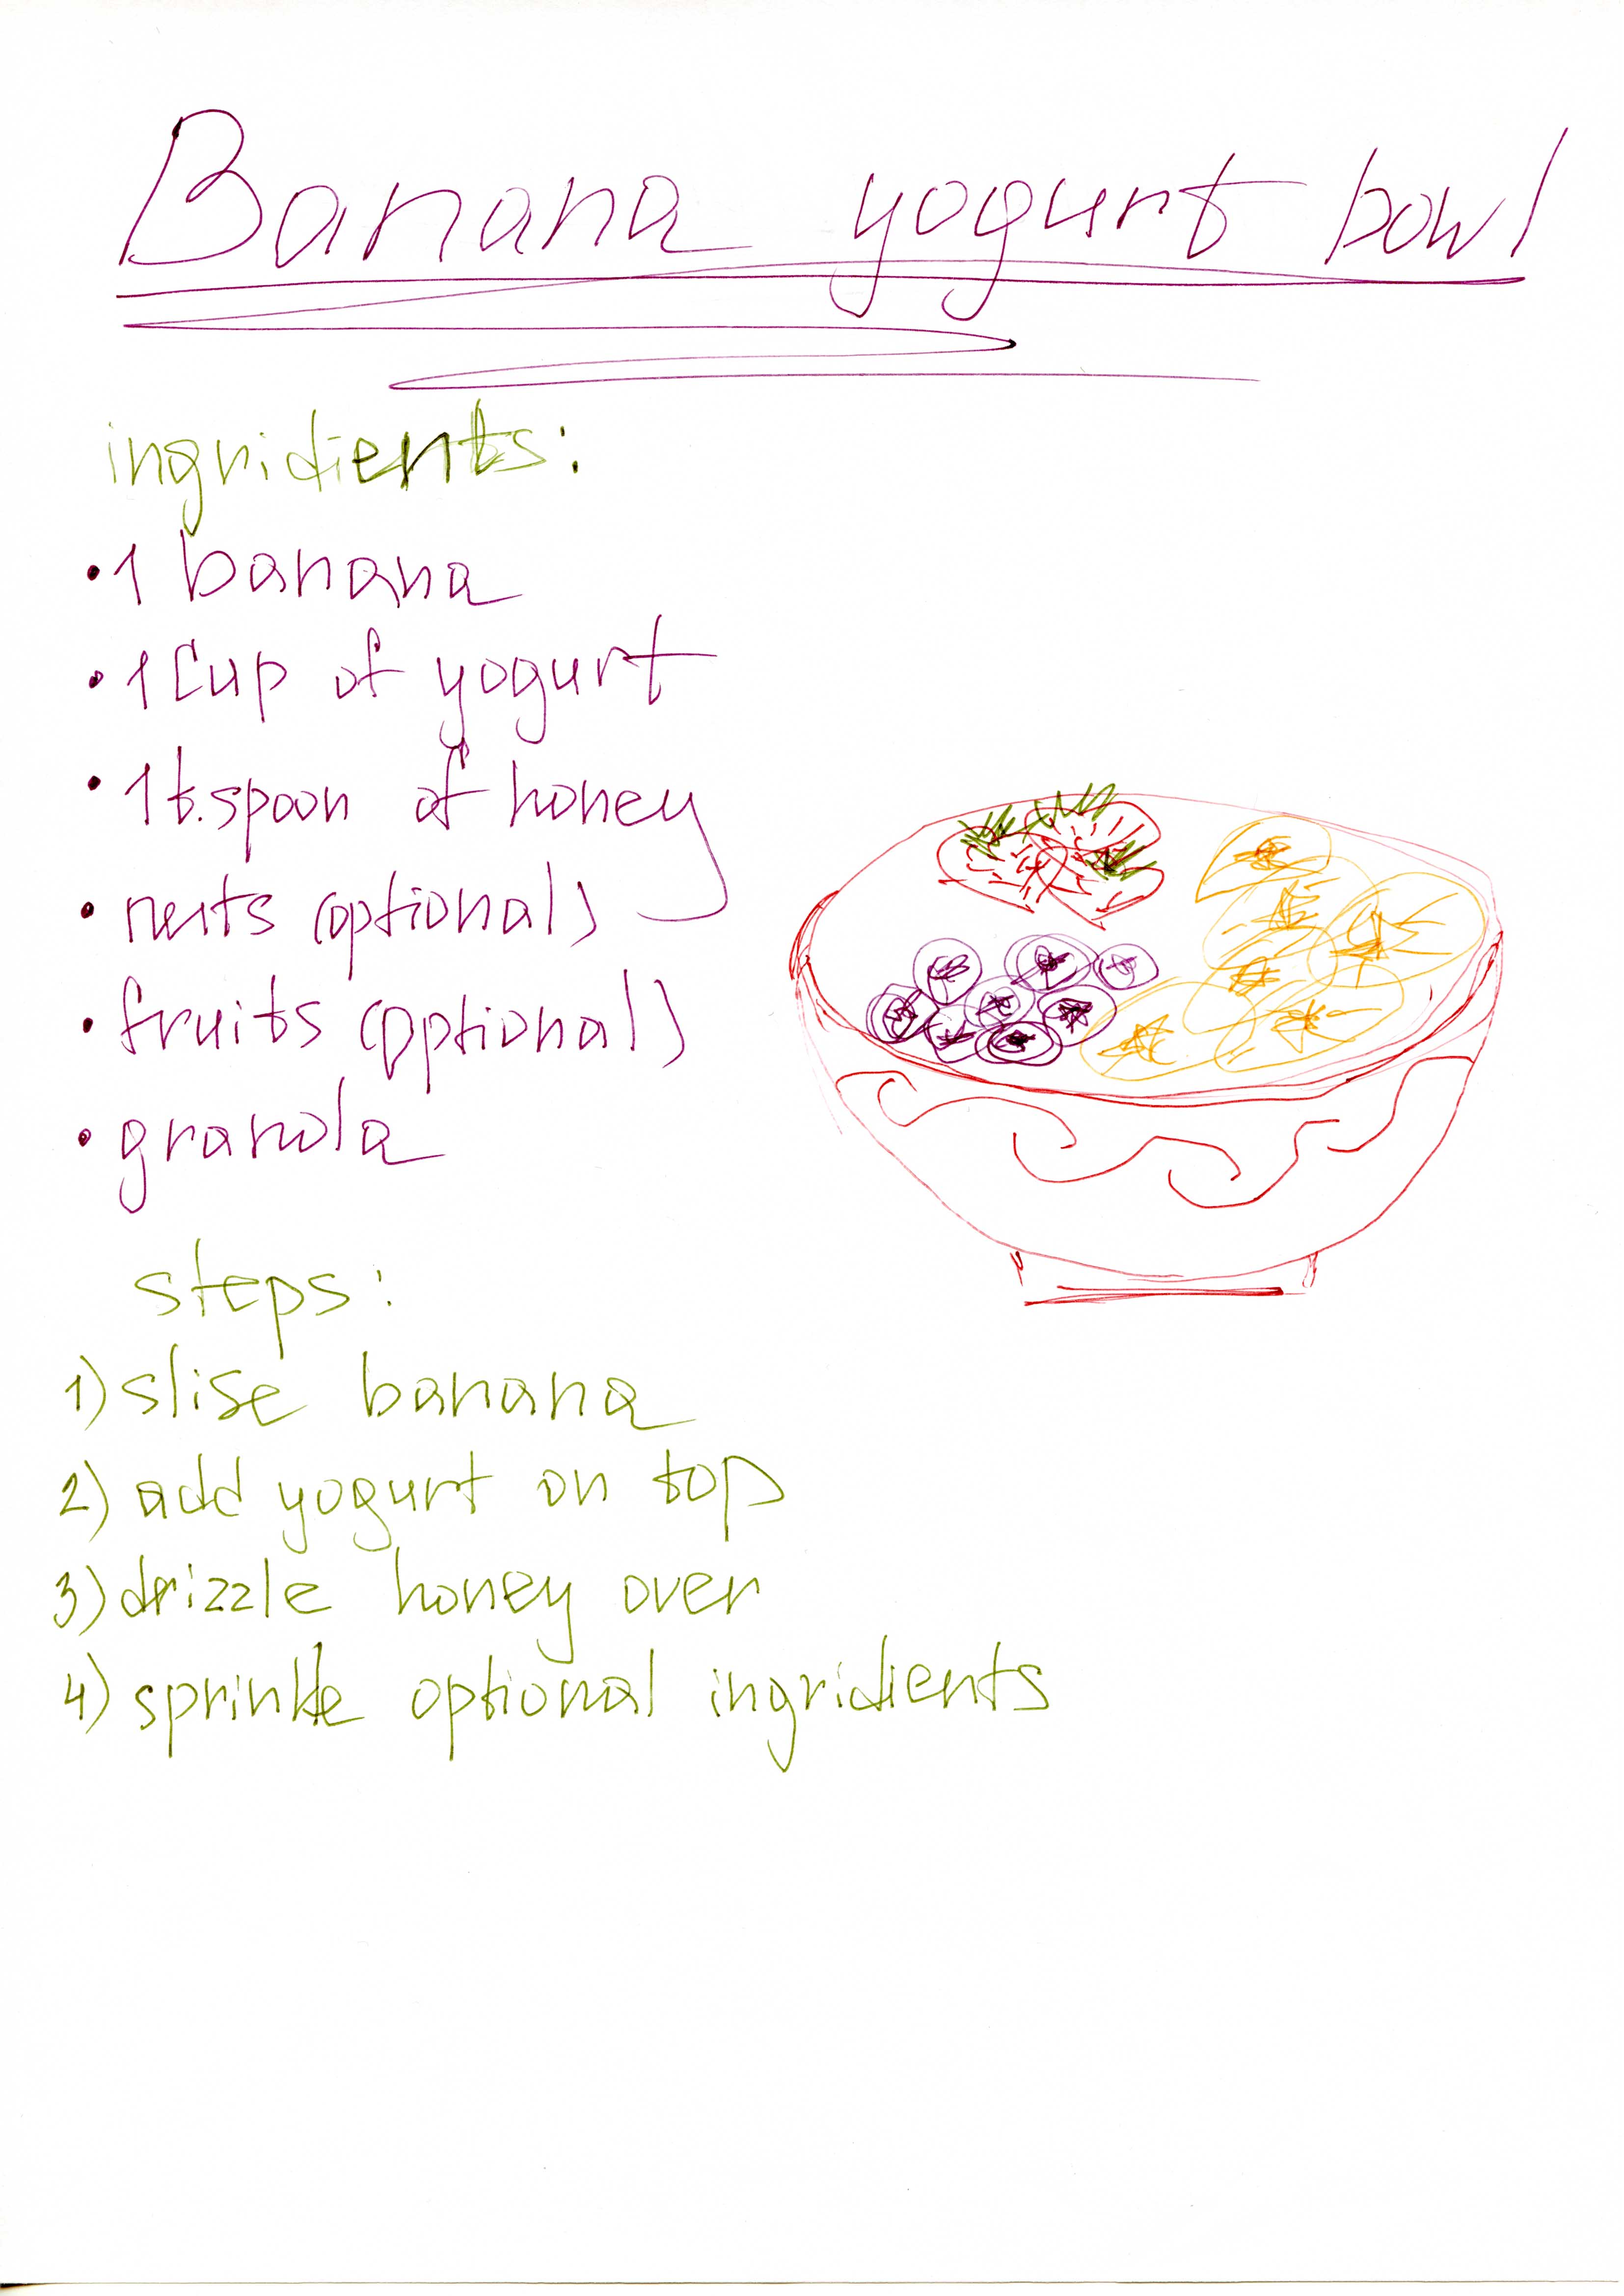 Banana yogurt bowl
ingridients:
• 1 banana
• 1 Cup of yogurt
• 1 t.spoon of honey
• nuts (optional)
• fruits (optional)
• granola
steps:
1) slise banana
2) add yogurt on top
3) drizzle honey over
4) sprinkle optional ingridients